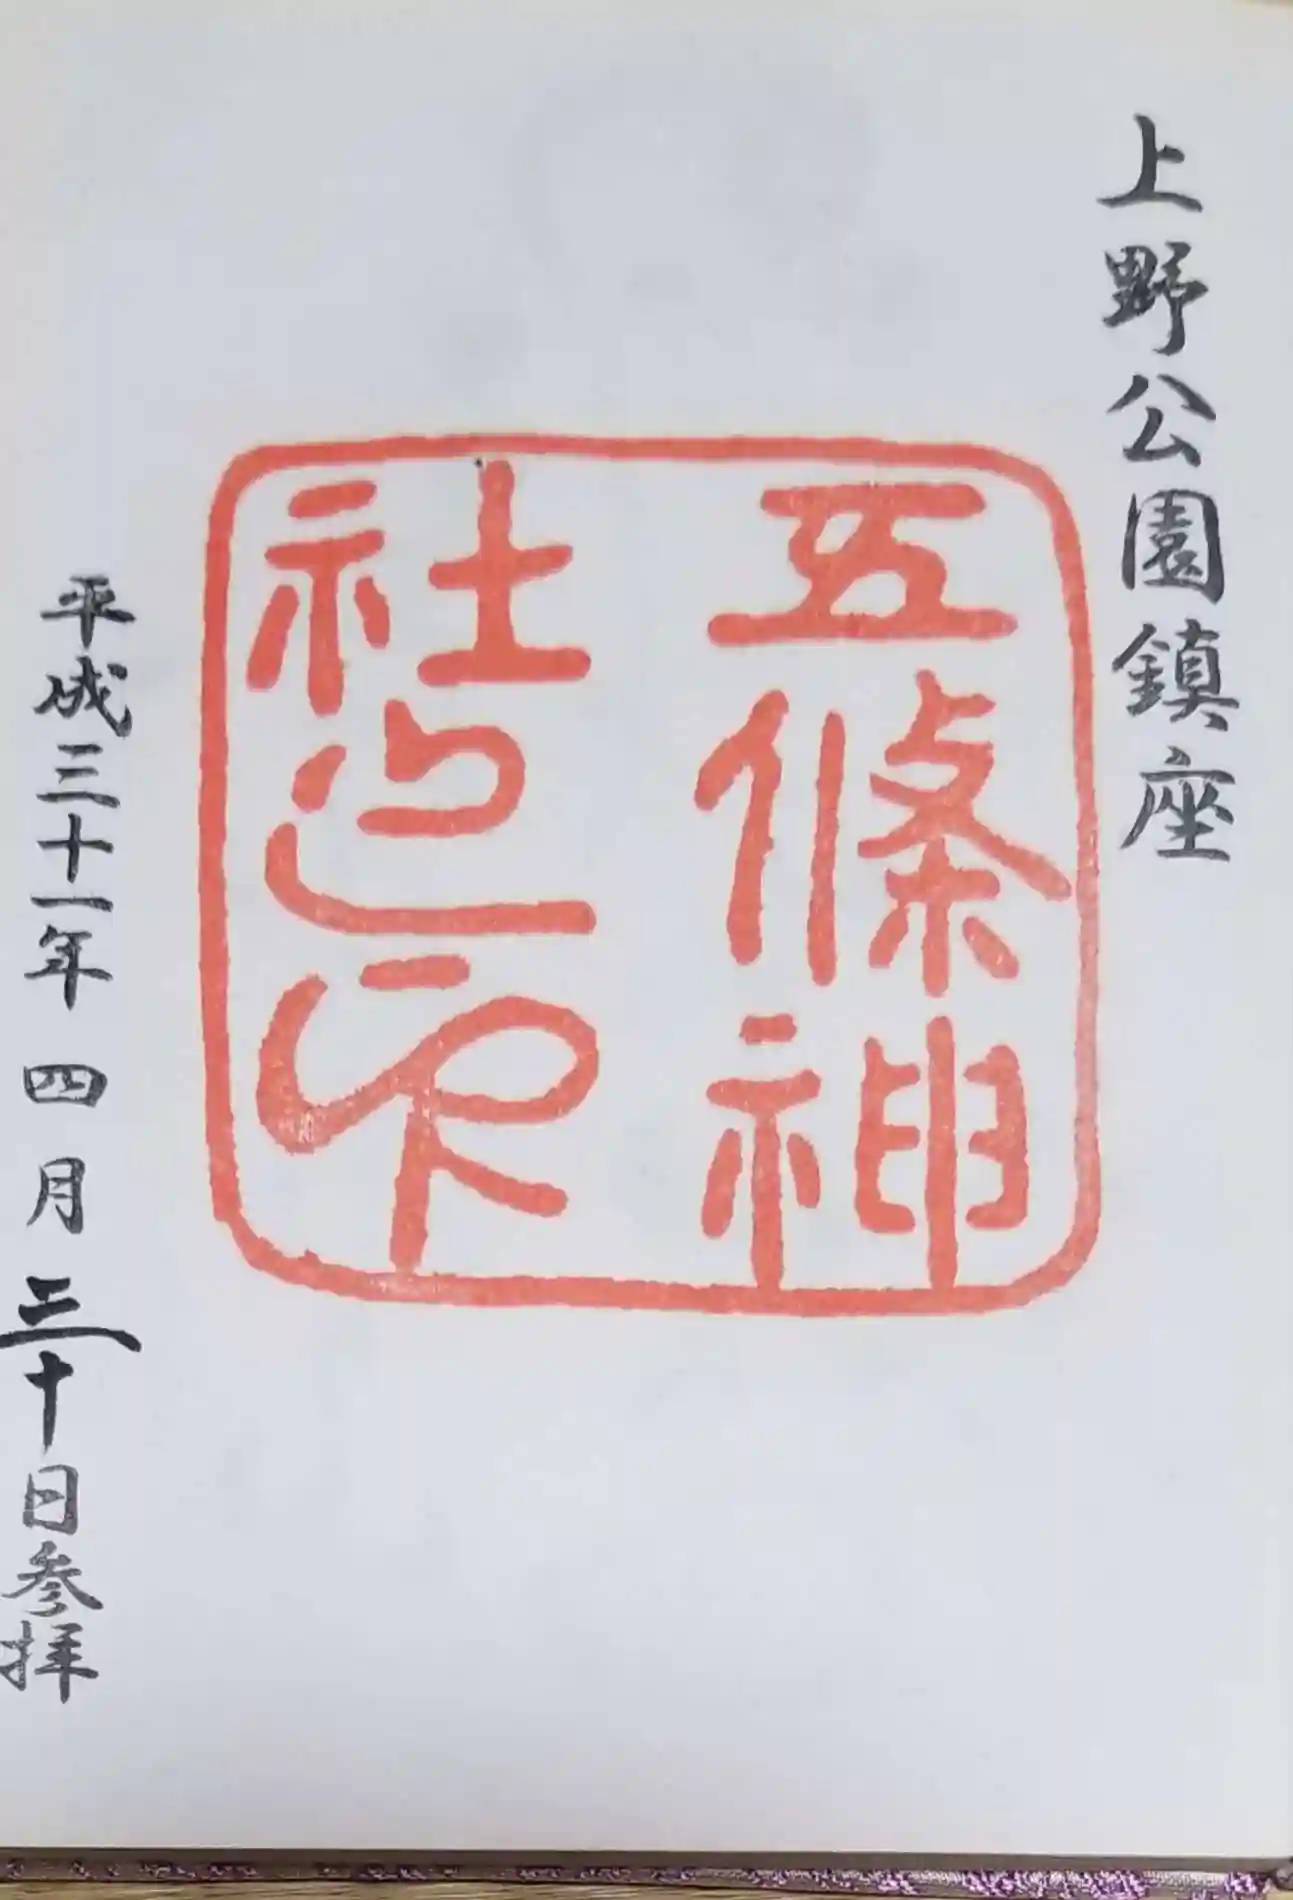 上野公園鎮座
五條神
社之印
平成三十一年 四月 三十日参拝